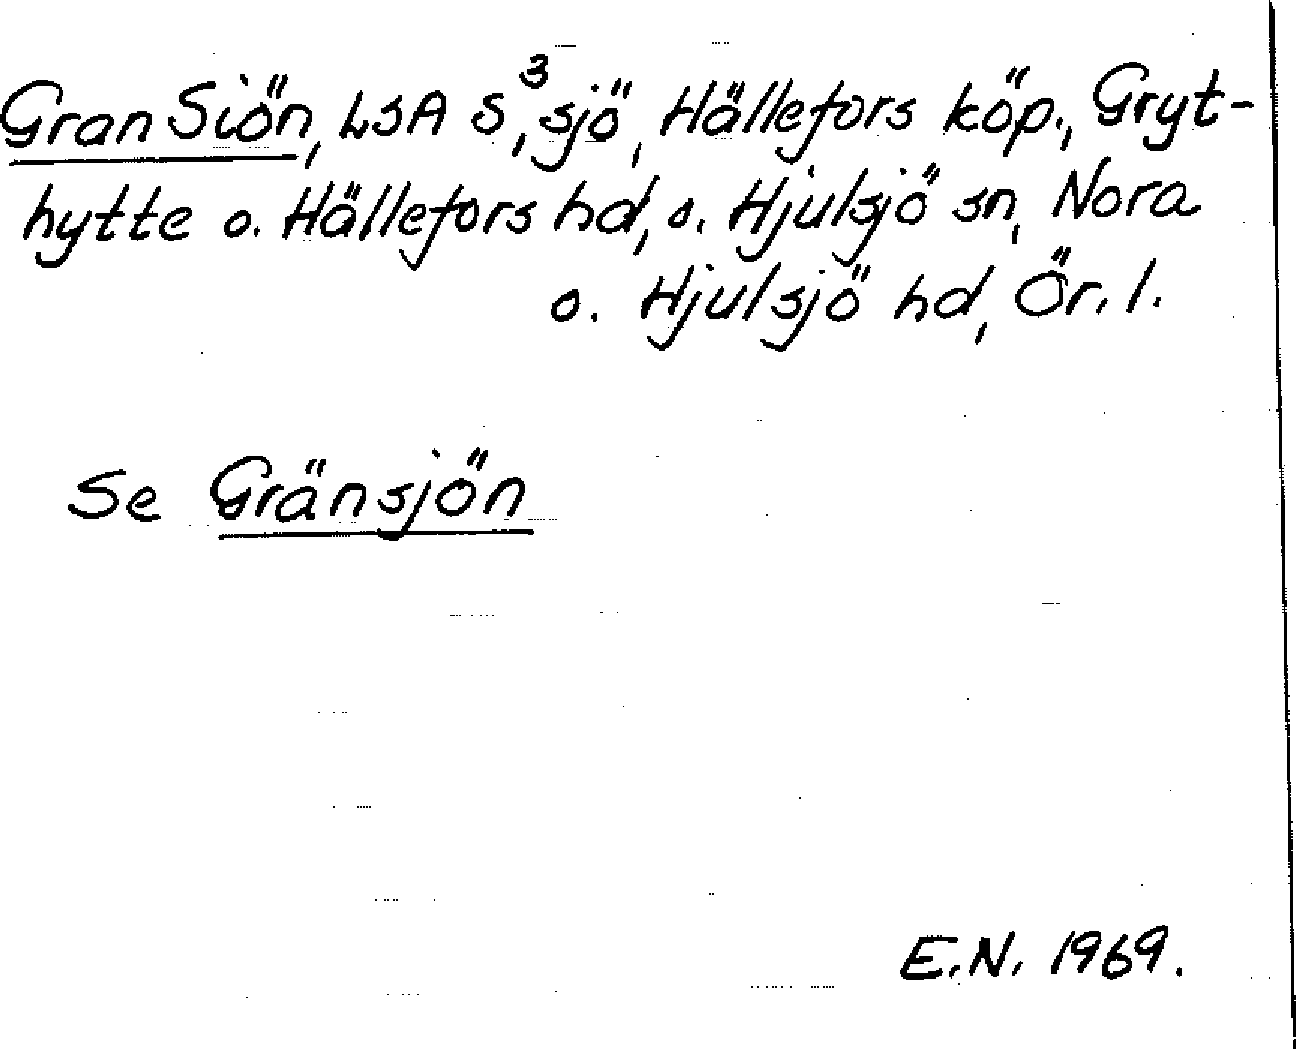 Gran Siön, LSA S³, sjö, Hällefors köp., Gryt-
hytte o. Hällefors hd, o. Hjulsjö sn, Nora
o. Hjulsjö hd, Ör. l.
Se Gränsjön
E.N. 1969.